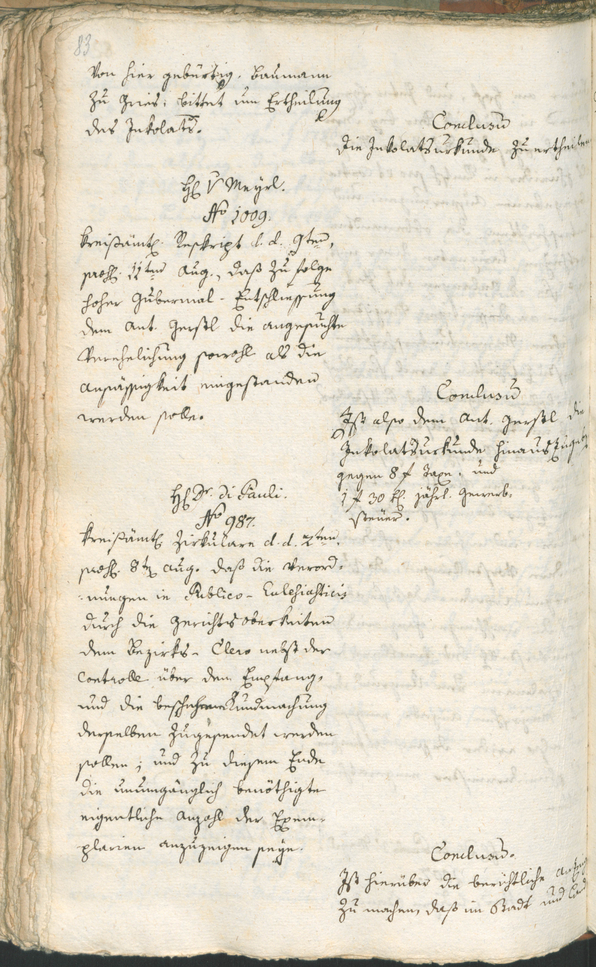 83
Von hier gebürtig. Baumann
zu Gries, bittet um Ertheilung
des Inkolats.
Conclusū
die Inkolatsurkunde zu ertheilen
H. V Meyrl.
No 1009.
Kreisämtl. Reskript d. d. 9ten,
praes. 11ten Aug., daß zu folge
hoher Gubernial-Entschliessung
dem Ant. Gerstl die angesuchte
Verehelichung sowohl als die
Ansässigkeit eingestanden
werden solle.
Conclusū
Ist also dem Ant. Gerstl die
Inkolatsurkunde hinaus
gegen 8 f Taxe, und
1 f 30 kr. jährl. Gewerb-
steuer.
H. Dr. di Pauli.
No 987.
Kreisämtl. Zirkulare d. d.
praes. 8t Aug. daß die Verord-
nungen in Publico-Eclesiasticis
durch die Gerichtsobrkeiten
dem Bezirks-Clero nebst der
Controlle über den Empfang,
und die Kundmachung
derselben zugesendet werden
sollen; und zu diesem Ende
die unumgänglich benöthigte
eigentliche Anzahl der Exem-
plarien anzuzeigen seye.
Conclusū.
Ist hierüber die berichtliche
zu machen, daß im Stadt und